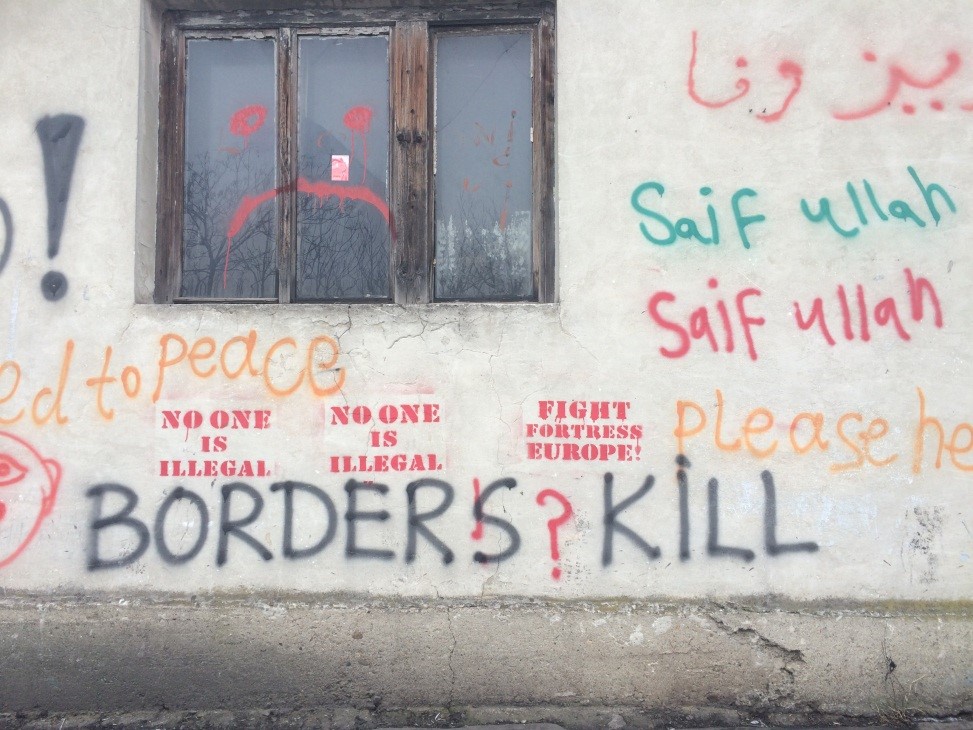 وفا
!
Saif ullah
Saif ullah
to peace
NO ONE
IS
ILLEGAL
NO ONE
IS
ILLEGAL
FIGHT
FORTRESS
EUROPE!
please he
BORDERS !? KILL